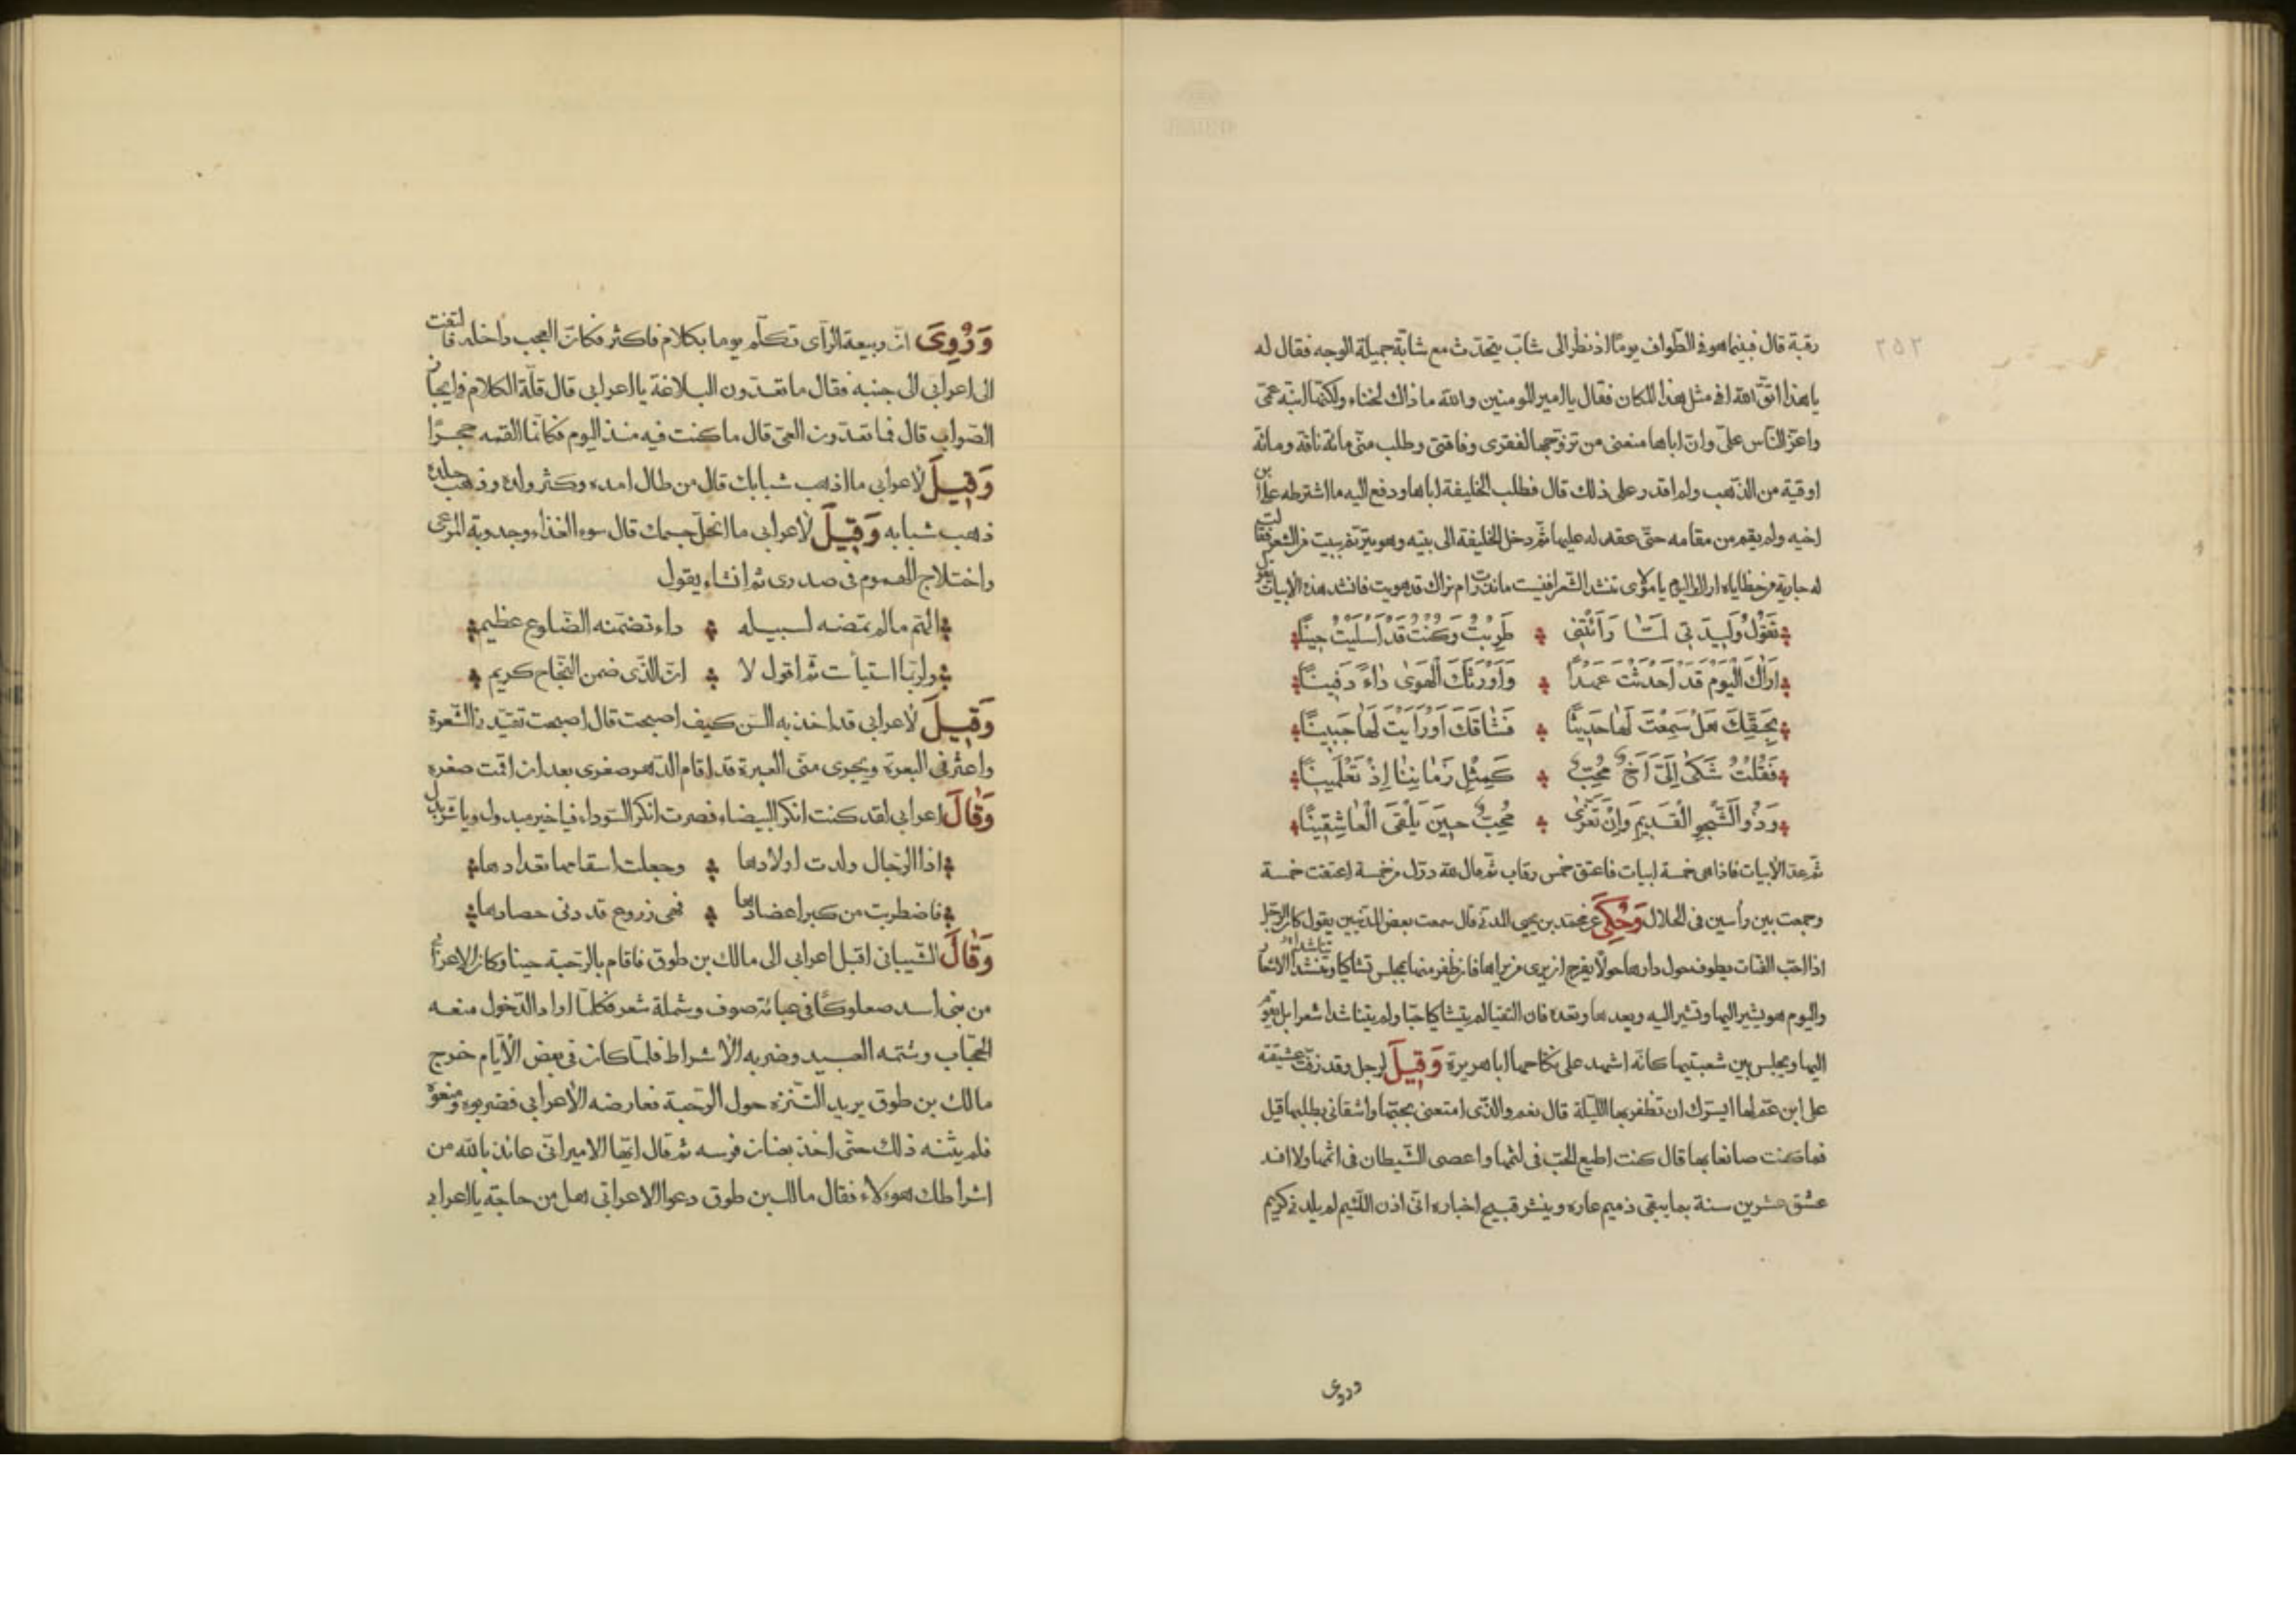 ٢٥٢
رقبة قال فبينما هو فى الطّواف يومًا اذ نظر الى شابّ يتحدّث مع شابّة جميلة الوجه فقال له
يا هذا اتّق الله افى مثل هذا المكان فقال يا امير المومنين والله ما ذاك لخناء ولكنّها ابنة عمّى
واعزّ النّاس علىّ وانّ اباها منعنى من تزوّجها لفقرى وفاقتى وطلب منّى مائة ناقة ومائة
اوقية من الذّهب ولم اقدر على ذلك قال فطلب الخليفة اباها ودفع اليه ما اشترطه على ابن
اخيه ولم يقم من مقامه حتّى عقد له عليها ثمّ دخل الخليفة الى بيته وهو يترنّم ببيت من الشعر فقالت
له جارية من حظاياه اراك اليوم يا مولاى تنشد الشّعر افنسيت ما نذرت ام نراك قد هويت فانشد هذه الابيات يقول
تَقُولُ وَلِيدَتِى لَمَّا رَأَتْنِى طَرِبْتُ وَكُنْتُ قَدْ أَسْلَيْتُ حِينًا
اَرَاكَ الْيَوْمَ قَدْ اَحْدَثْتَ عَهْدًا وَاَوْرَثَكَ الْهَوَى دَاءً دَفِينًا
بِحَقِّكَ هَلْ سَمِعْتَ لَهَا حَدِيثًا فَشَاقَكَ اَوْ رَاَيْتَ لَهَا جَبِينًا
فَقُلْتُ شَكَى اِلَىَّ اَخٌ مُحِبٌّ كَمِثْلِ زَمَانِنَا اِذْ تَعْلَمِينَا
وَذُو الشَّجْوِ الْقَدِيمِ وَاِنْ تَعَزَّى مُحِبٌّ حِينَ يَلْقَى الْعَاشِقِينَا
ثمّ عدّ الأبيات فاذا هى خمسة ابيات فاعتق خمس رقاب ثمّ قال لله درّك من خمسة اعتقت خمسة
وجمعت بين رأسين فى الحلال وَحُكِىَ عن محمّد بن يحيى المدنى قال سمعت بعض المدنيين يقول كان الرّجل
اذا احبّ الفتاة يطوف حول دارها حولًا يفرح ان يرى من يراها فان ظفر منها بمجلس تشاكيا وتناشدا الاشعار
واليوم هو يشير اليها وتشير اليه ويعدها وتعده فان التقيا لم يتشاكيا حبّا ولم يتناشدا شعرا بل يقوم
اليها ويجلس بين شعبتيها كانّه اشهد على نكاحها ابا هريرة وَقِيلَ لرجل وقد زفّت عشيقته
على ابن عمّ لها ايسرّك ان تظفر بها اللّيلة قال نعم والّذى امتعنى بحبّها واشقانى بطلبها قيل
فما كنت صانعا بها قال كنت اطيع الحبّ فى لثمها واعصى الشّيطان فى اثمها ولا افسد
عشق عشرين سنة بما يبقى ذميم عاره وينشر قبيح اخباره انّى اذن اللّئيم لم يلدنى كريم
وروى
وَرُوِىَ انّ ربيعة الرّأى تكلّم يوما بكلام فاكثر فكانّ العجب داخله فالتفت
الى اعرابى الى جنبه فقال ما تعدّون البلاغة يا اعرابى قال قلّة الكلام وايجاز
الصّواب قال فما تعدّون العىّ قال ما كنت فيه منذ اليوم فكانّما القمه حجرًا
وَقِيلَ لاعرابى ما اذهب شبابك قال من طال امده وكثر ولده وذهب جلده
ذهب شبابه وَقِيلَ لاعرابى ما انحل جسمك قال سوء الغذاء وجدوبة المرعى
واختلاج الهموم فى صدرى ثمّ انشاء يقول
الهمّ ما لم تمضه لسبيله داء تضمّنه الضّلوع عظيم
ولربّما استيأست ثمّ اقول لا انّ الّذى ضمن النّجاح كريم
وَقِيلَ لاعرابى قد اخذ به السّن كيف اصبحت قال اصبحت تقيّدنى الشّعرة
واعثر فى البعرة ويجرى منّى العبرة قد اقام الدّهر صغرى بعد ان اقمت صغره
وَقَالَ اعرابى لقد كنت انكر البيضاء فصرت انكر السّوداء فيا خير مبدول ويا شرّ بدل
اذا الرّجال ولدت اولادها وجعلت اسقامها تعدادها
فاضطربت من كبر اعضادها فهى زروع قد دنى حصادها
وَقَالَ الشّيبانى اقبل اعرابى الى مالك بن طوق فاقام بالرّحبة حينا وكان الاعرابى
من بنى اسد صعلوكًا فى عبائة صوف وشملة شعر فكلّما اراد الدّخول منعه
الحجّاب وشتمه العبيد وضربه الأشراط فلمّا كان فى بعض الأيّام خرج
مالك بن طوق يريد التّنزّه حول الرّحبة فعارضه الأعرابى فضربوه ومنعوه
فلم يثنه ذلك حتّى اخذ بعنان فرسه ثمّ قال ايّها الامير انّى عائذ بالله من
اشراطك هوءلاء فقال مالك بن طوق دعوا الاعرابى هل من حاجة يا اعرابى